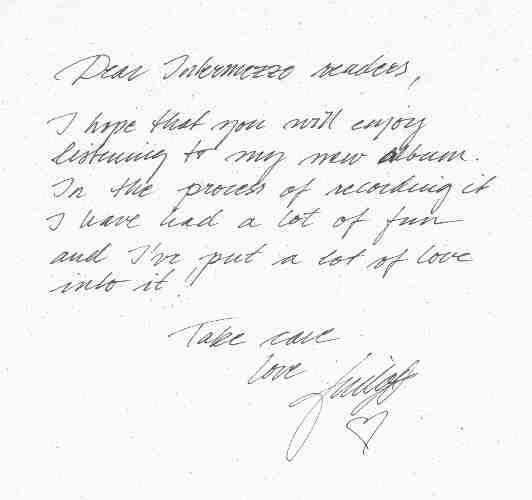 Dear Intermezzo readers,
I hope that you will enjoy
listening to my new album.
In the process of recording it
I have had a lot of fun
and I've put a lot of love
into it!
Take care
love